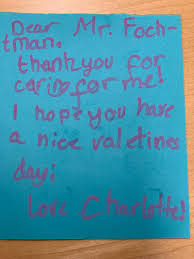 Dear Mr. Foch-
tman,
thank you for
caring for me!
I hope you have
a nice valetines
day!
Love Charlotte!